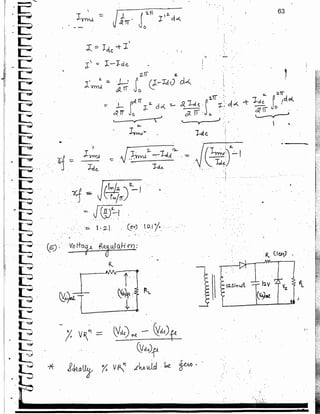 63
I'rms = √(1/2π ∫₀^2π I'² dα
I = Idc + I'
I' = I - Idc
I'rms² = 1/2π ∫₀^2π (I - Idc)² dα
= 1/2π ∫₀^2π I² dα - 2Idc/2π ∫₀^2π I dα + Idc²/2π ∫₀^2π dα
Irms² Idc
γf = I'rms/Idc = √(Irms² - Idc²)/Idc = √((Irms/Idc)² - 1)
γf = √((Im/2 / Im/π)² - 1)
= √((π/2)² - 1)
= 1.21 (or) 121%.
(5). Voltage Regulation:
R RL
R (1kΩ)
12V Vz RL
% VRⁿ = ((Vdc)NL - (Vdc)FL)/(Vdc)FL
* Ideally % VRⁿ should be zero.